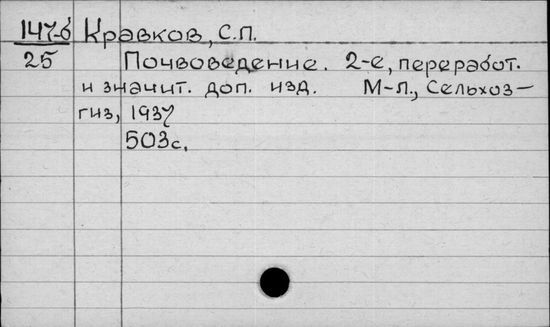 147-б Кравков, С.П.
25 Почвоведение. 2-е, переработ.
и значит. доп. изд. М-Л., Сельхоз-
гиз, 1937
503с.